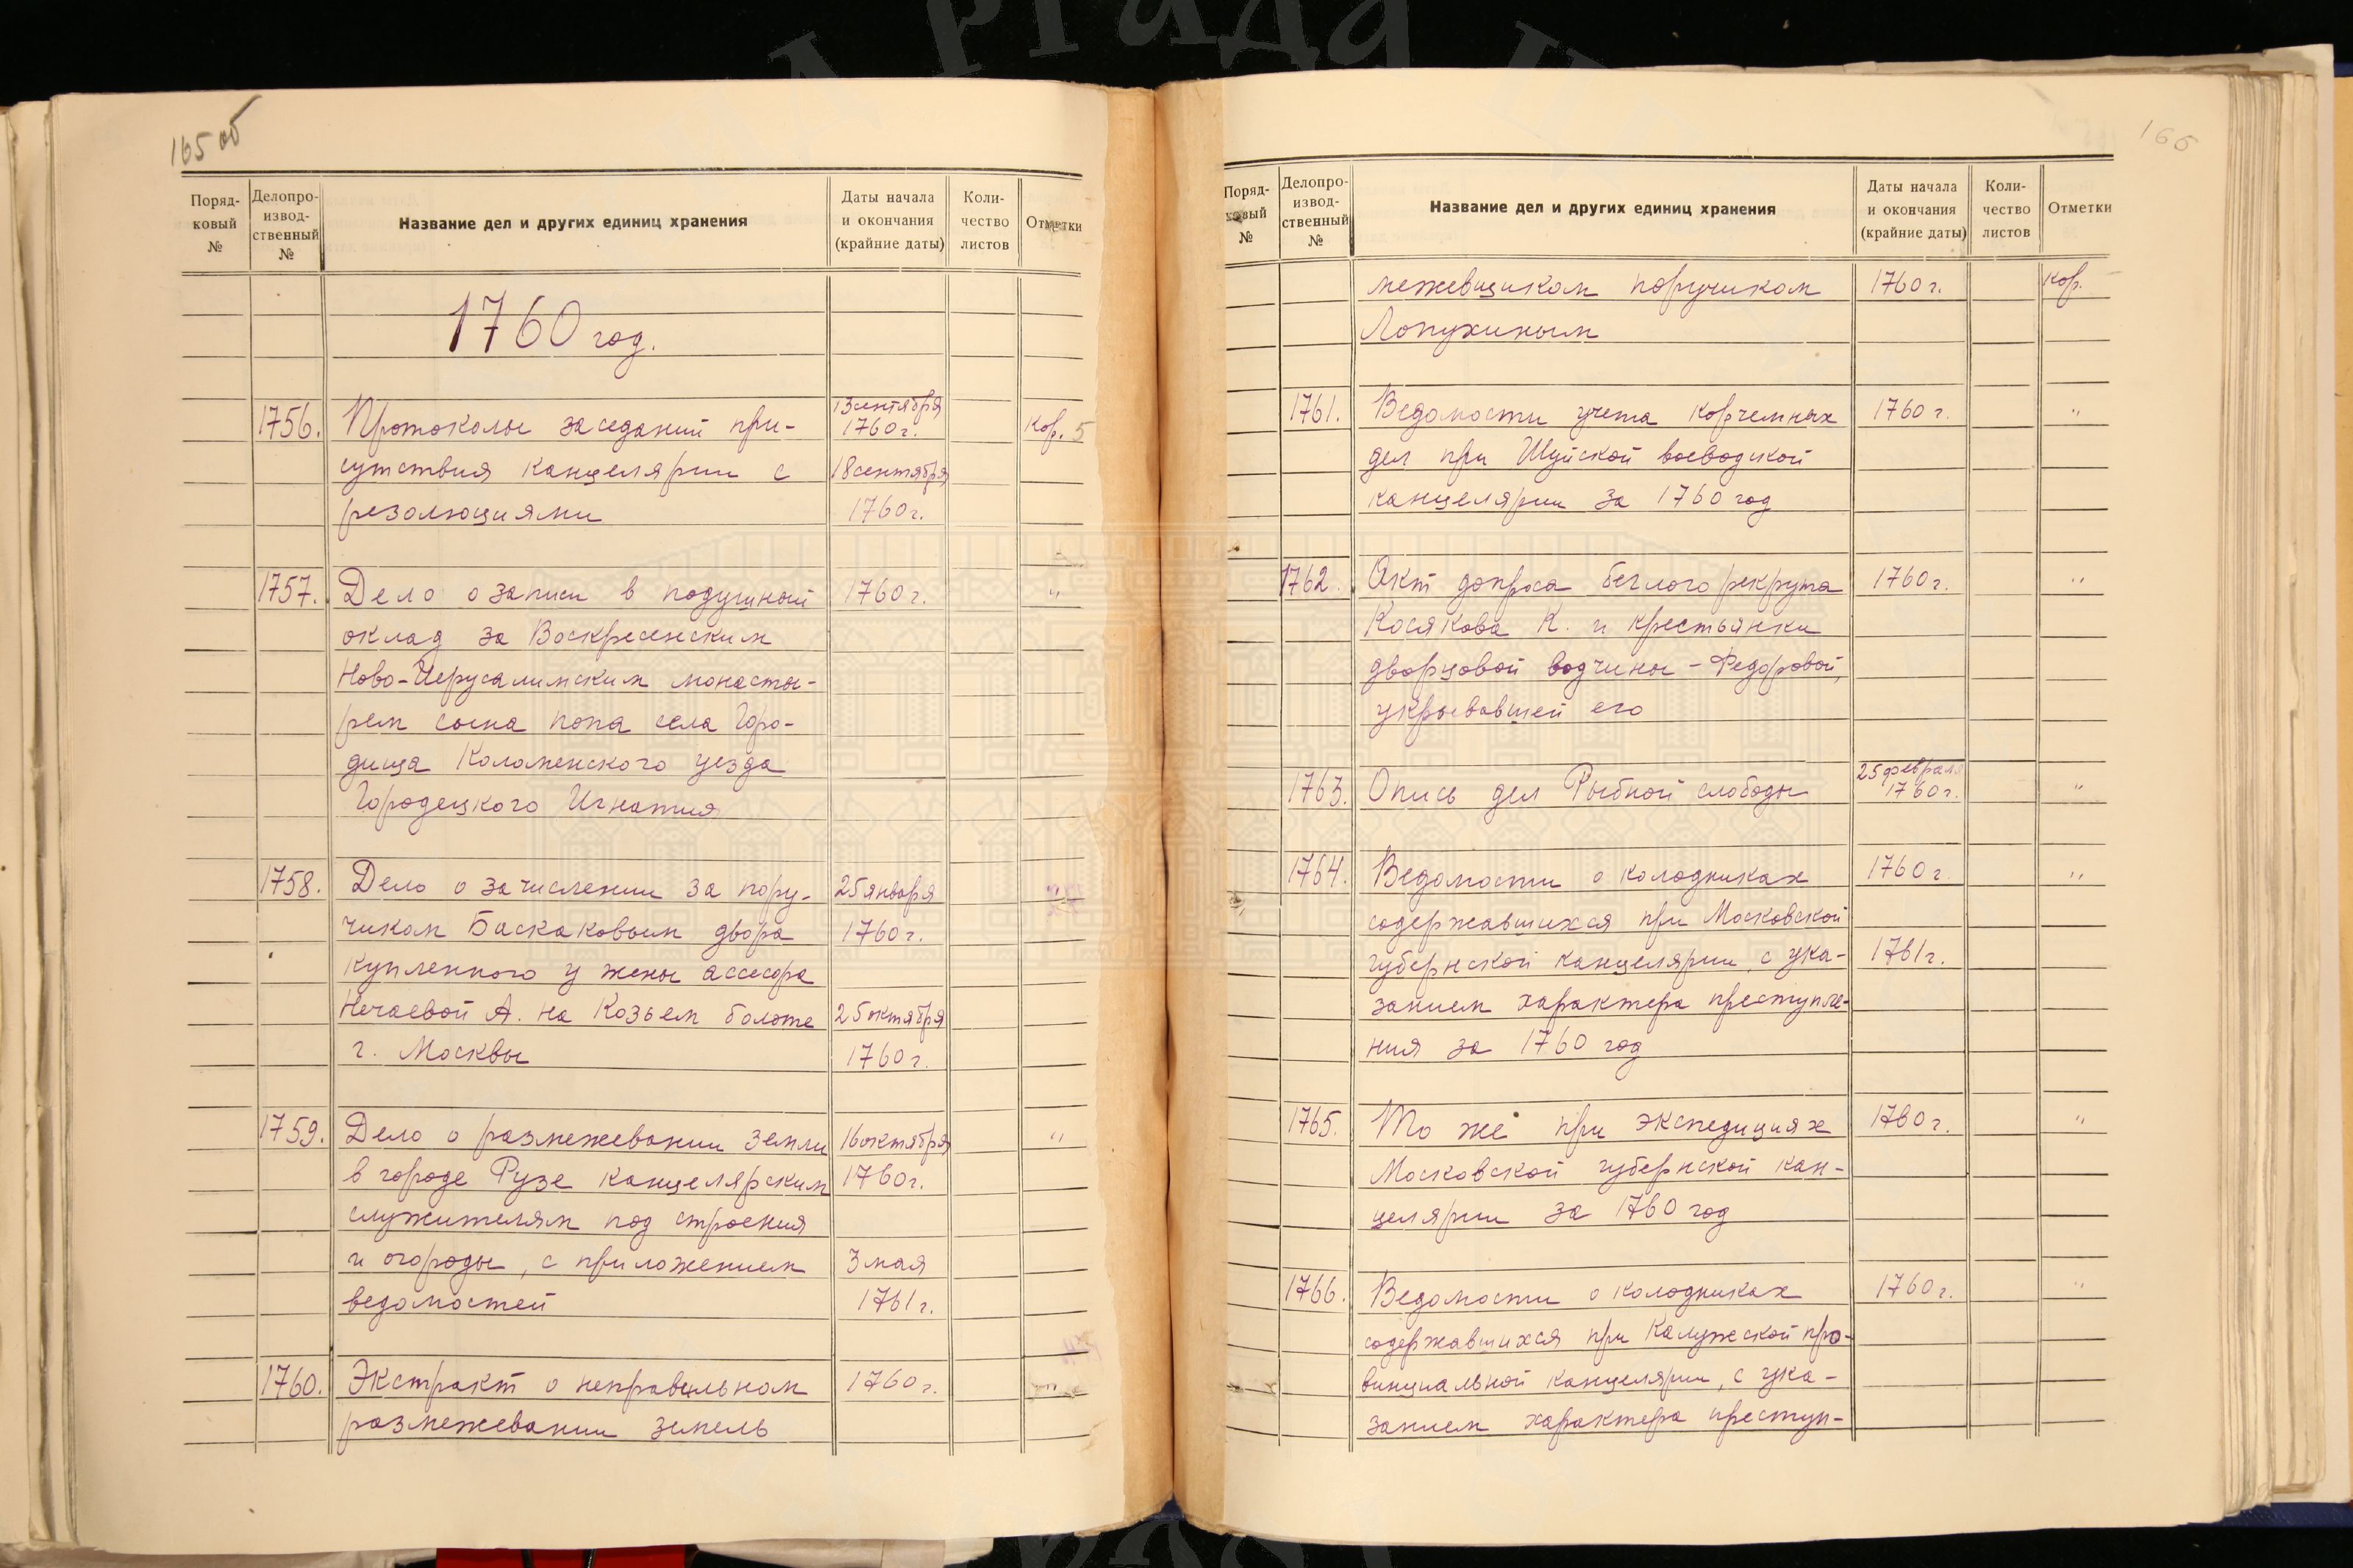 165 об
Поряд-
ковый
№
Делопро-
извод-
ственный
№
Название дел и других единиц хранения
Даты начала
и окончания
(крайние даты)
Коли-
чество
листов
Отметки
1760 год.
13 сентября
1756. Протоколы заседаний при- 1760 г. Кор. 5
сутствия канцелярии с 18 сентября
резолюциями 1760 г.
1757. Дело о записи в подушный 1760 г. "
оклад за Воскресенским
Ново-Иерусалимским монасты-
рем сына попа села Горо-
дища Коломенского уезда
Городецкого Игнатия
1758. Дело о зачислении за пору- 25 января
чиком Баскаковым двора 1760 г.
купленного у жены ассесора
Нечаевой А. на Козьем болоте 25 октября
г. Москвы 1760 г.
1759. Дело о размежевании земли 16 октября "
в городе Рузе канцелярским 1760 г.
служителям под строения
и огороды, с приложением 3 мая
ведомостей 1761 г.
1760. Экстракт о неправильном 1760 г. "
размежевании земель
166
Поряд-
ковый
№
Делопро-
извод-
ственный
№
Название дел и других единиц хранения
Даты начала
и окончания
(крайние даты)
Коли-
чество
листов
Отметки
межевщиком поручиком 1760 г. Кор.
Лопухиным
1761. Ведомости учета корчемных 1760 г. "
дел при Шуйской воеводской
канцелярии за 1760 год
1762. Акт допроса беглого рекрута 1760 г. "
Косякова К. и крестьянки
дворцовой вотчины - Федоровой,
укрывавшей его
25 февраля
1763. Опись дел Рыбной слободы 1760 г. "
1764. Ведомости о колодниках 1760 г. "
содержавшихся при Московской
губернской канцелярии, с ука- 1761 г.
занием характера преступле-
ния за 1760 год
1765. То же при экспедициях 1760 г. "
Московской губернской кан-
целярии за 1760 год
1766. Ведомости о колодниках 1760 г. "
содержавшихся при Калужской про-
винциальной канцелярии, с ука-
занием характера преступ-